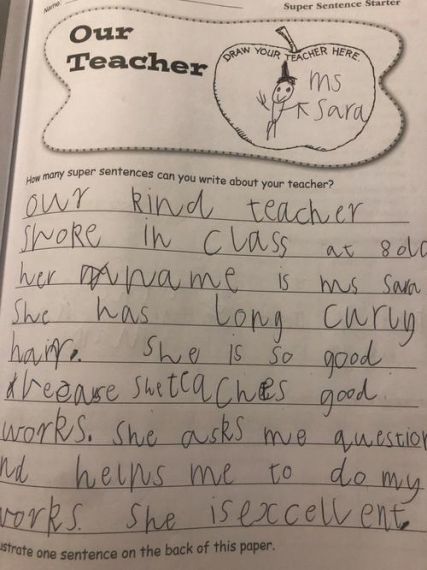 Name:
Super Sentence Starter
Our
Teacher
DRAW YOUR TEACHER HERE.
ms
Sara
How many super sentences can you write about your teacher?
our kind teacher
spoke in class at 8 olo
her name is ms Sara
She has long curly
hair. She is so good
because she teaches good
works. She asks me question
nd helps me to do my
works. She is excellent.
ustrate one sentence on the back of this paper.